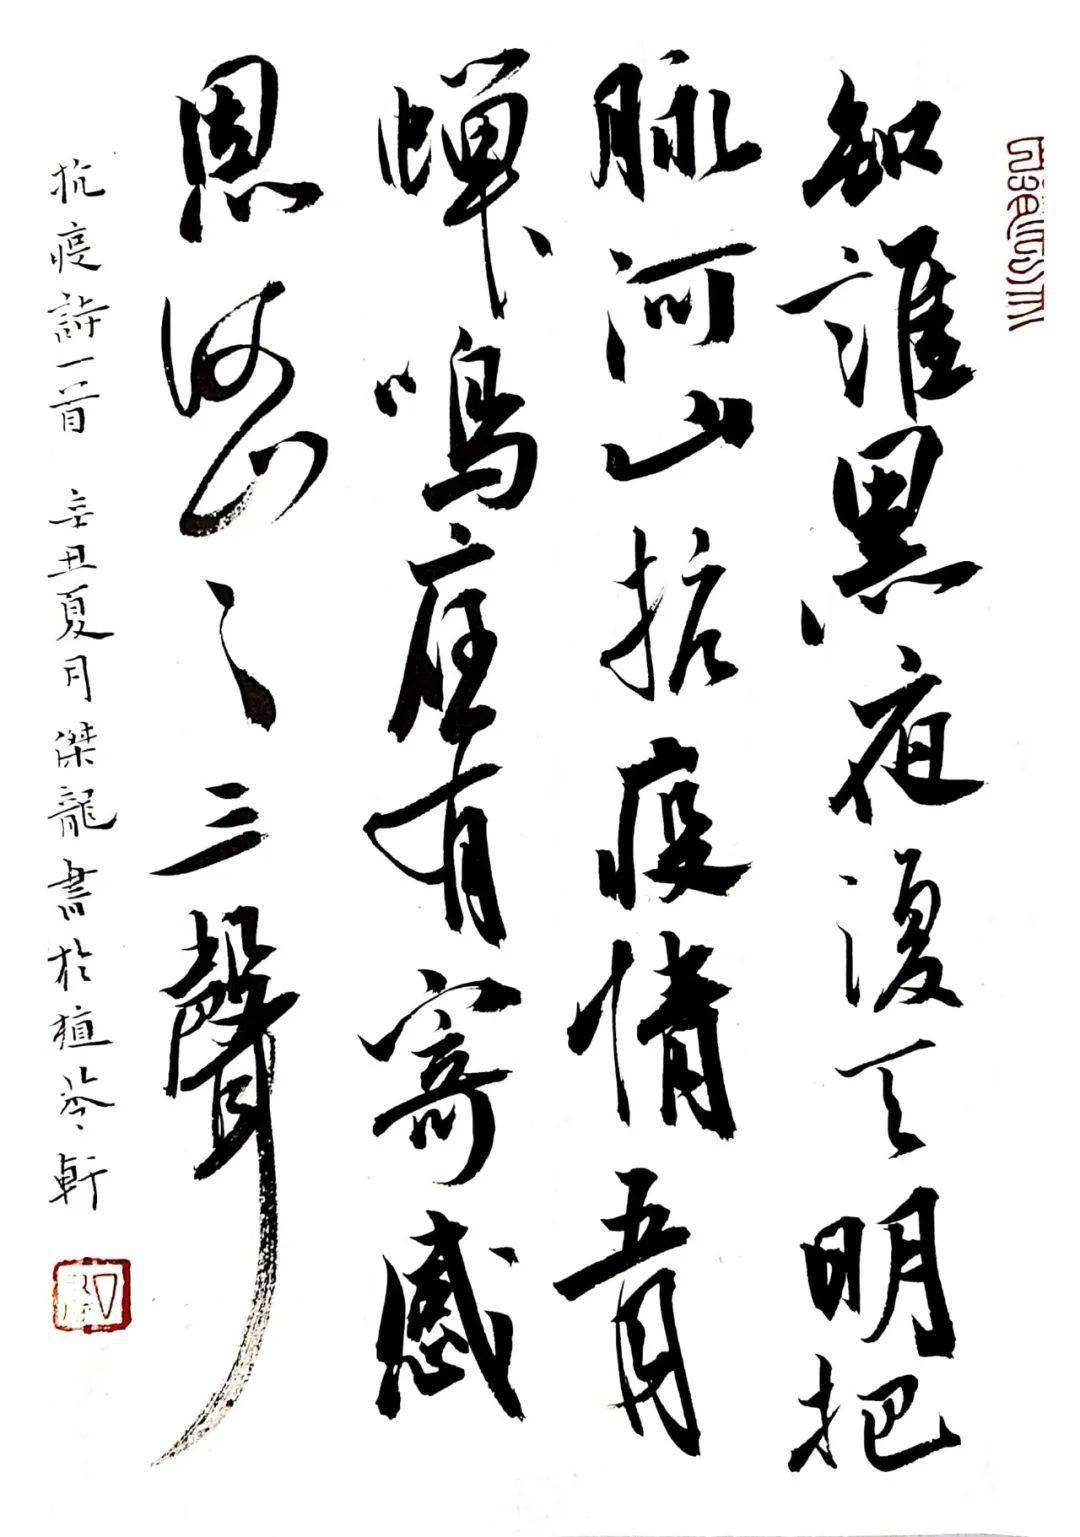 知誰黑夜復天明把
脉河山抗疫情五月
蟬鳴應有寄感
恩三聲
抗疫詩一首 辛丑夏月傑龍書於植苓軒